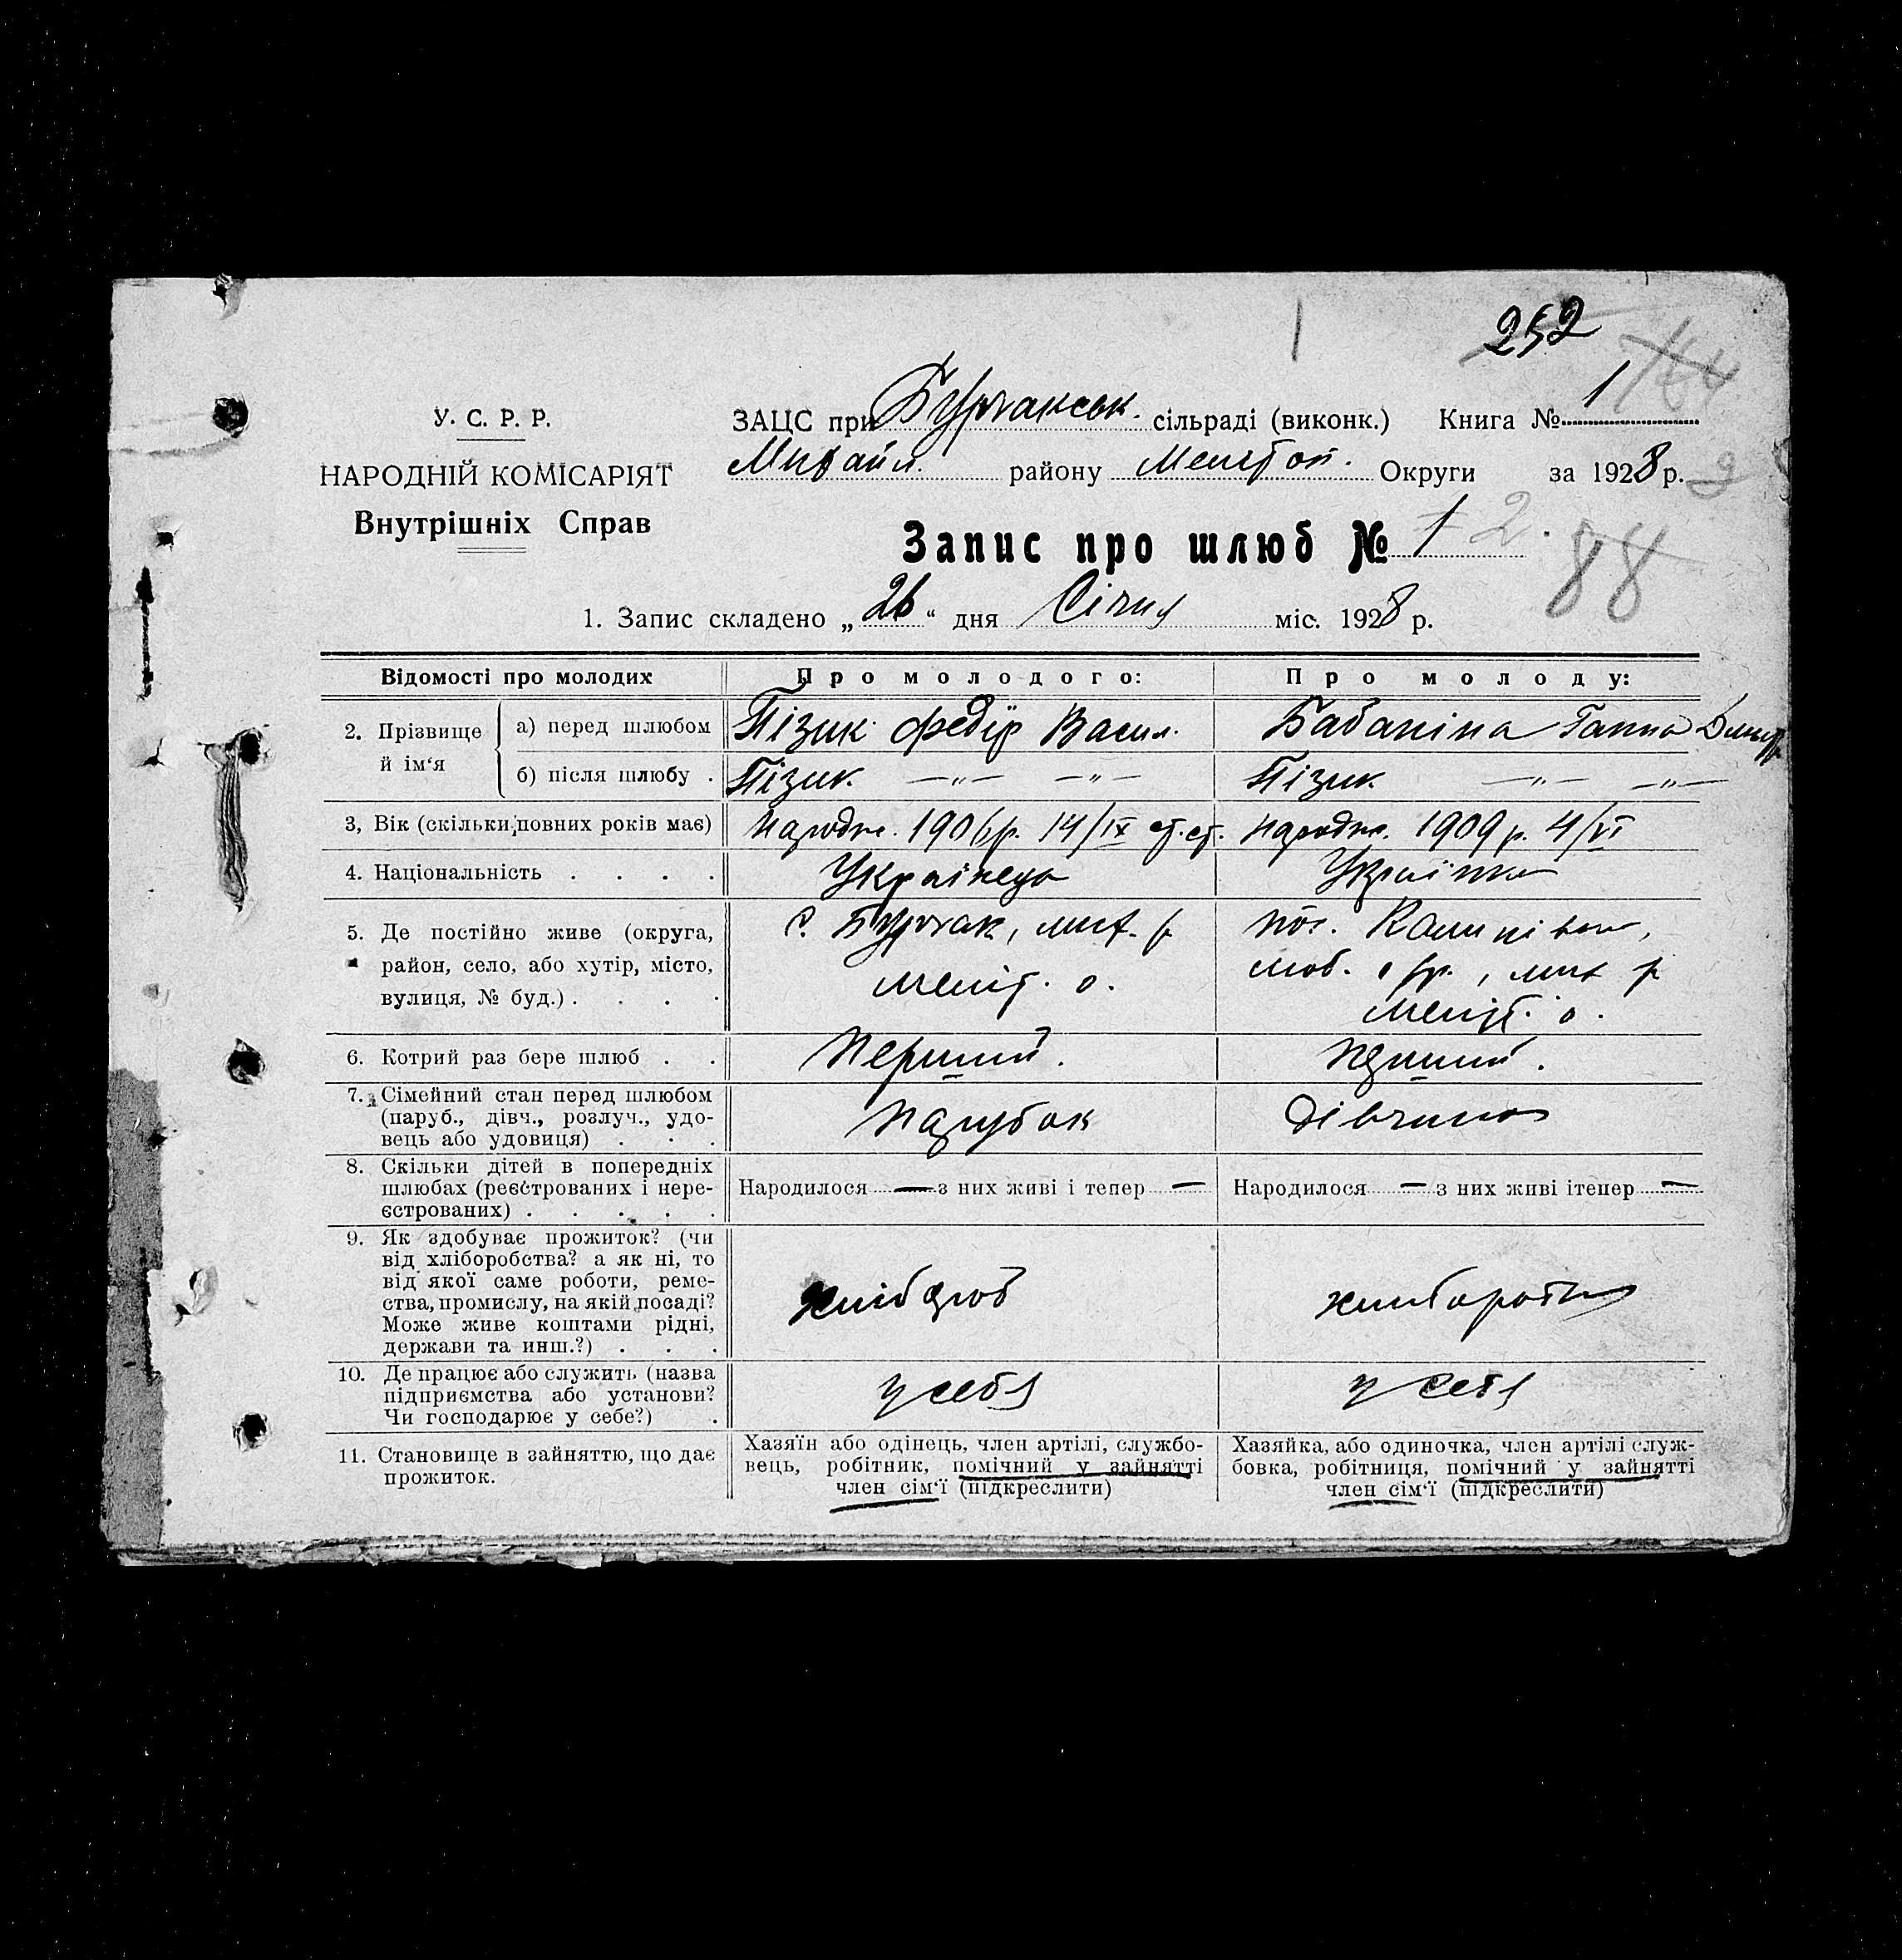 252
1
У. С. Р. Р.
НАРОДНІЙ КОМІСАРІЯТ
Внутрішніх Справ
ЗАЦС при Бурчакськ. сільраді (виконк.) Книга № 1
Михайл. району Меліт. Округи за 1928 р.
Запис про шлюб № 1 2
88
1. Запис складено „26“ дня Січня міс. 1928 р.
Відомості про молодих Про молодого: Про молоду:
2. Прізвище й ім‘я
а) перед шлюбом Пізик Федір Васил. Бабаніна Ганна Дмитр
б) після шлюбу . Пізик —„— —„— Пізик —„— —„—
3, Вік (скільки повних років має) народж. 1906 р. 14/IX ст. ст. народж. 1909 р. 4/VI
4. Національність . . . . Українець Українка
5. Де постійно живе (округа,
район, село, або хутір, місто,
вулиця, № буд.) . . . .
с. Бурчак, мих. р
меліт. о.
пос. Калинівка,
р., мих р
меліт. о.
6. Котрий раз бере шлюб . . Перший. перший.
7. Сімейний стан перед шлюбом
(паруб., дівч., розлуч., удо-
вець або удовиця) . . .
парубок дівчина
8. Скільки дітей в попередніх
шлюбах (реєстрованих і нере-
єстрованих) . . . . .
Народилося — з них живі і тепер — Народилося — з них живі ітепер —
9. Як здобуває прожиток? (чи
від хліборобства? а як ні, то
від якої саме роботи, реме-
ства, промислу, на якій посаді?
Може живе коштами рідні,
держави та инш.?) . . .
хлібороб
10. Де працює або служить (назва
підприємства або установи?
Чи господарює у себе?) .
у себя у себя
11. Становище в зайняттю, що дає
прожиток.
Хазяїн або одінець, член артілі, службо-
вець, робітник, помічний у зайнятті
член сім‘ї (підкреслити)
Хазяйка, або одиночка, член артілі служ-
бовка, робітниця, помічний у зайнятті
член сім‘ї (підкреслити)